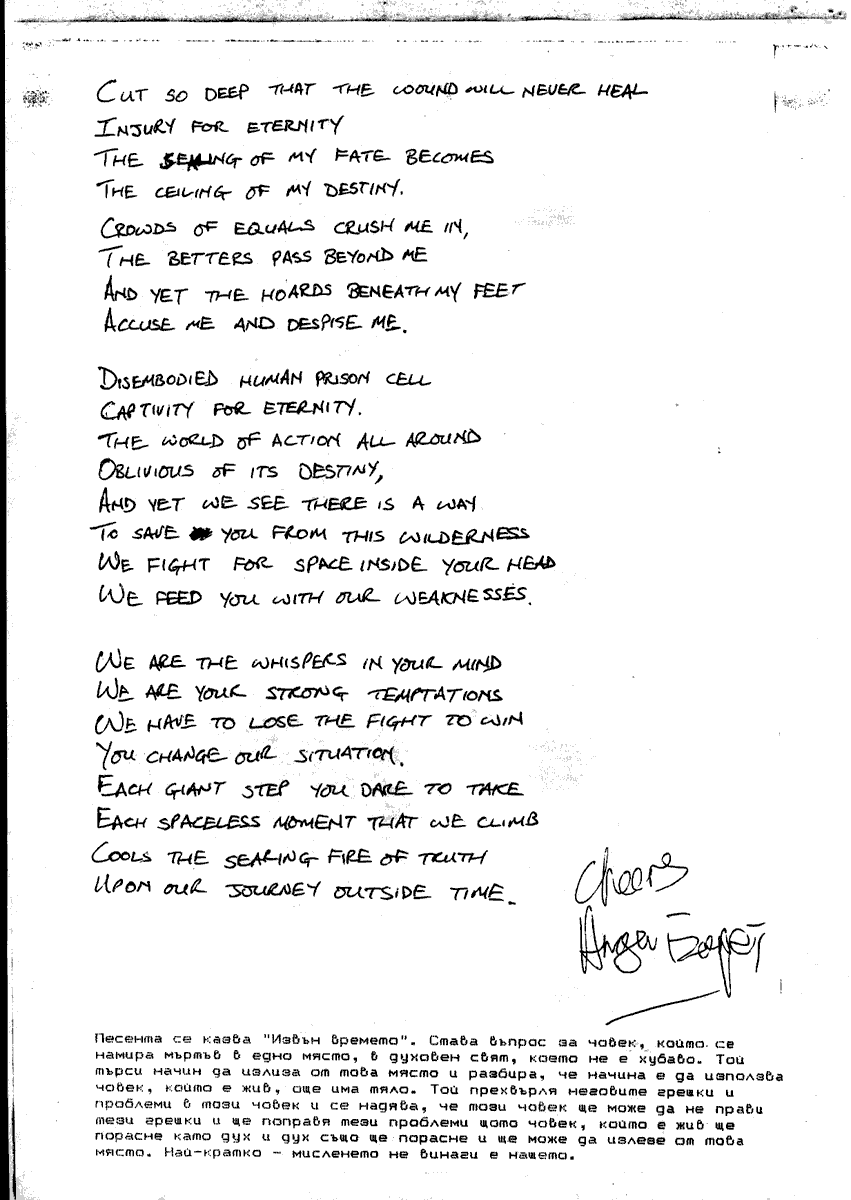 CUT SO DEEP THAT THE WOUND WILL NEVER HEAL
INJURY FOR ETERNITY
THE SEALING OF MY FATE BECOMES
THE CEILING OF MY DESTINY.
CROWDS OF EQUALS CRUSH ME IN,
THE BETTERS PASS BEYOND ME
AND YET THE HOARDS BENEATH MY FEET
ACCUSE ME AND DESPISE ME.
DISEMBODIED HUMAN PRISON CELL
CAPTIVITY FOR ETERNITY.
THE WORLD OF ACTION ALL AROUND
OBLIVIOUS OF ITS DESTINY,
AND YET WE SEE THERE IS A WAY
TO SAVE YOU FROM THIS WILDERNESS
WE FIGHT FOR SPACE INSIDE YOUR HEAD
WE FEED YOU WITH OUR WEAKNESSES.
WE ARE THE WHISPERS IN YOUR MIND
WE ARE YOUR STRONG TEMPTATIONS
WE HAVE TO LOSE THE FIGHT TO WIN
YOU CHANGE OUR SITUATION.
EACH GIANT STEP YOU DARE TO TAKE
EACH SPACELESS MOMENT THAT WE CLIMB
COOLS THE SEARING FIRE OF TRUTH
UPON OUR JOURNEY OUTSIDE TIME.
Cheers
Песента се казва "Извън времето". Става въпрос за човек, който се
намира мъртъв в едно място, в духовен свят, което не е хубаво. Той
търси начин да излиза от това място и разбира, че начина е да използва
човек, който е жив, още има тяло. Той прехвърля неговите грешки и
проблеми в този човек и се надява, че този човек ще може да не прави
тези грешки и ще поправя тези проблеми щото човек, който е жив ще
порасне като дух и дух също ще порасне и ще може да излезе от това
място. Най-кратко - мисленето не винаги е нашето.